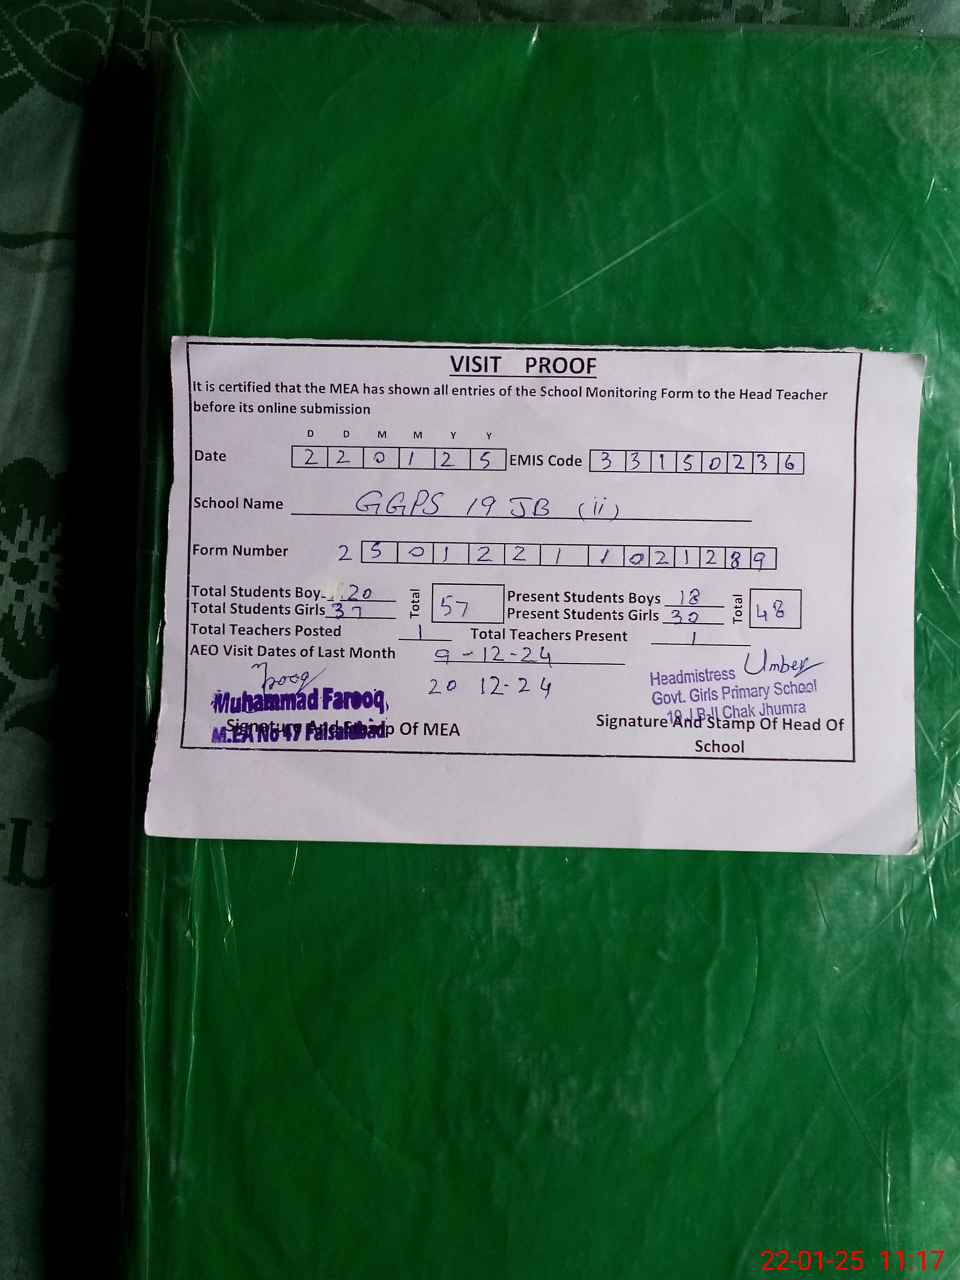 VISIT PROOF
It is certified that the MEA has shown all entries of the School Monitoring Form to the Head Teacher
before its online submission
D D M M Y Y
Date 2 2 0 1 2 5 EMIS Code 3 3 1 5 0 2 3 6
School Name GGPS 19 JB (ii)
Form Number 2 5 0 1 2 2 1 1 0 2 1 2 8 9
Total Students Boy 20 Total 57 Present Students Boys 18 Total 48
Total Students Girls 37 Present Students Girls 30
Total Teachers Posted 1 Total Teachers Present 1
AEO Visit Dates of Last Month 9-12-24
20 12-24
Farooq Headmistress Umber
Muhammad Farooq, Govt. Girls Primary School
J.B-II Chak Jhumra
Signature And Stamp Of MEA Signature And Stamp Of Head Of
M.EA No 47 Faisalabad School
22-01-25 11:17